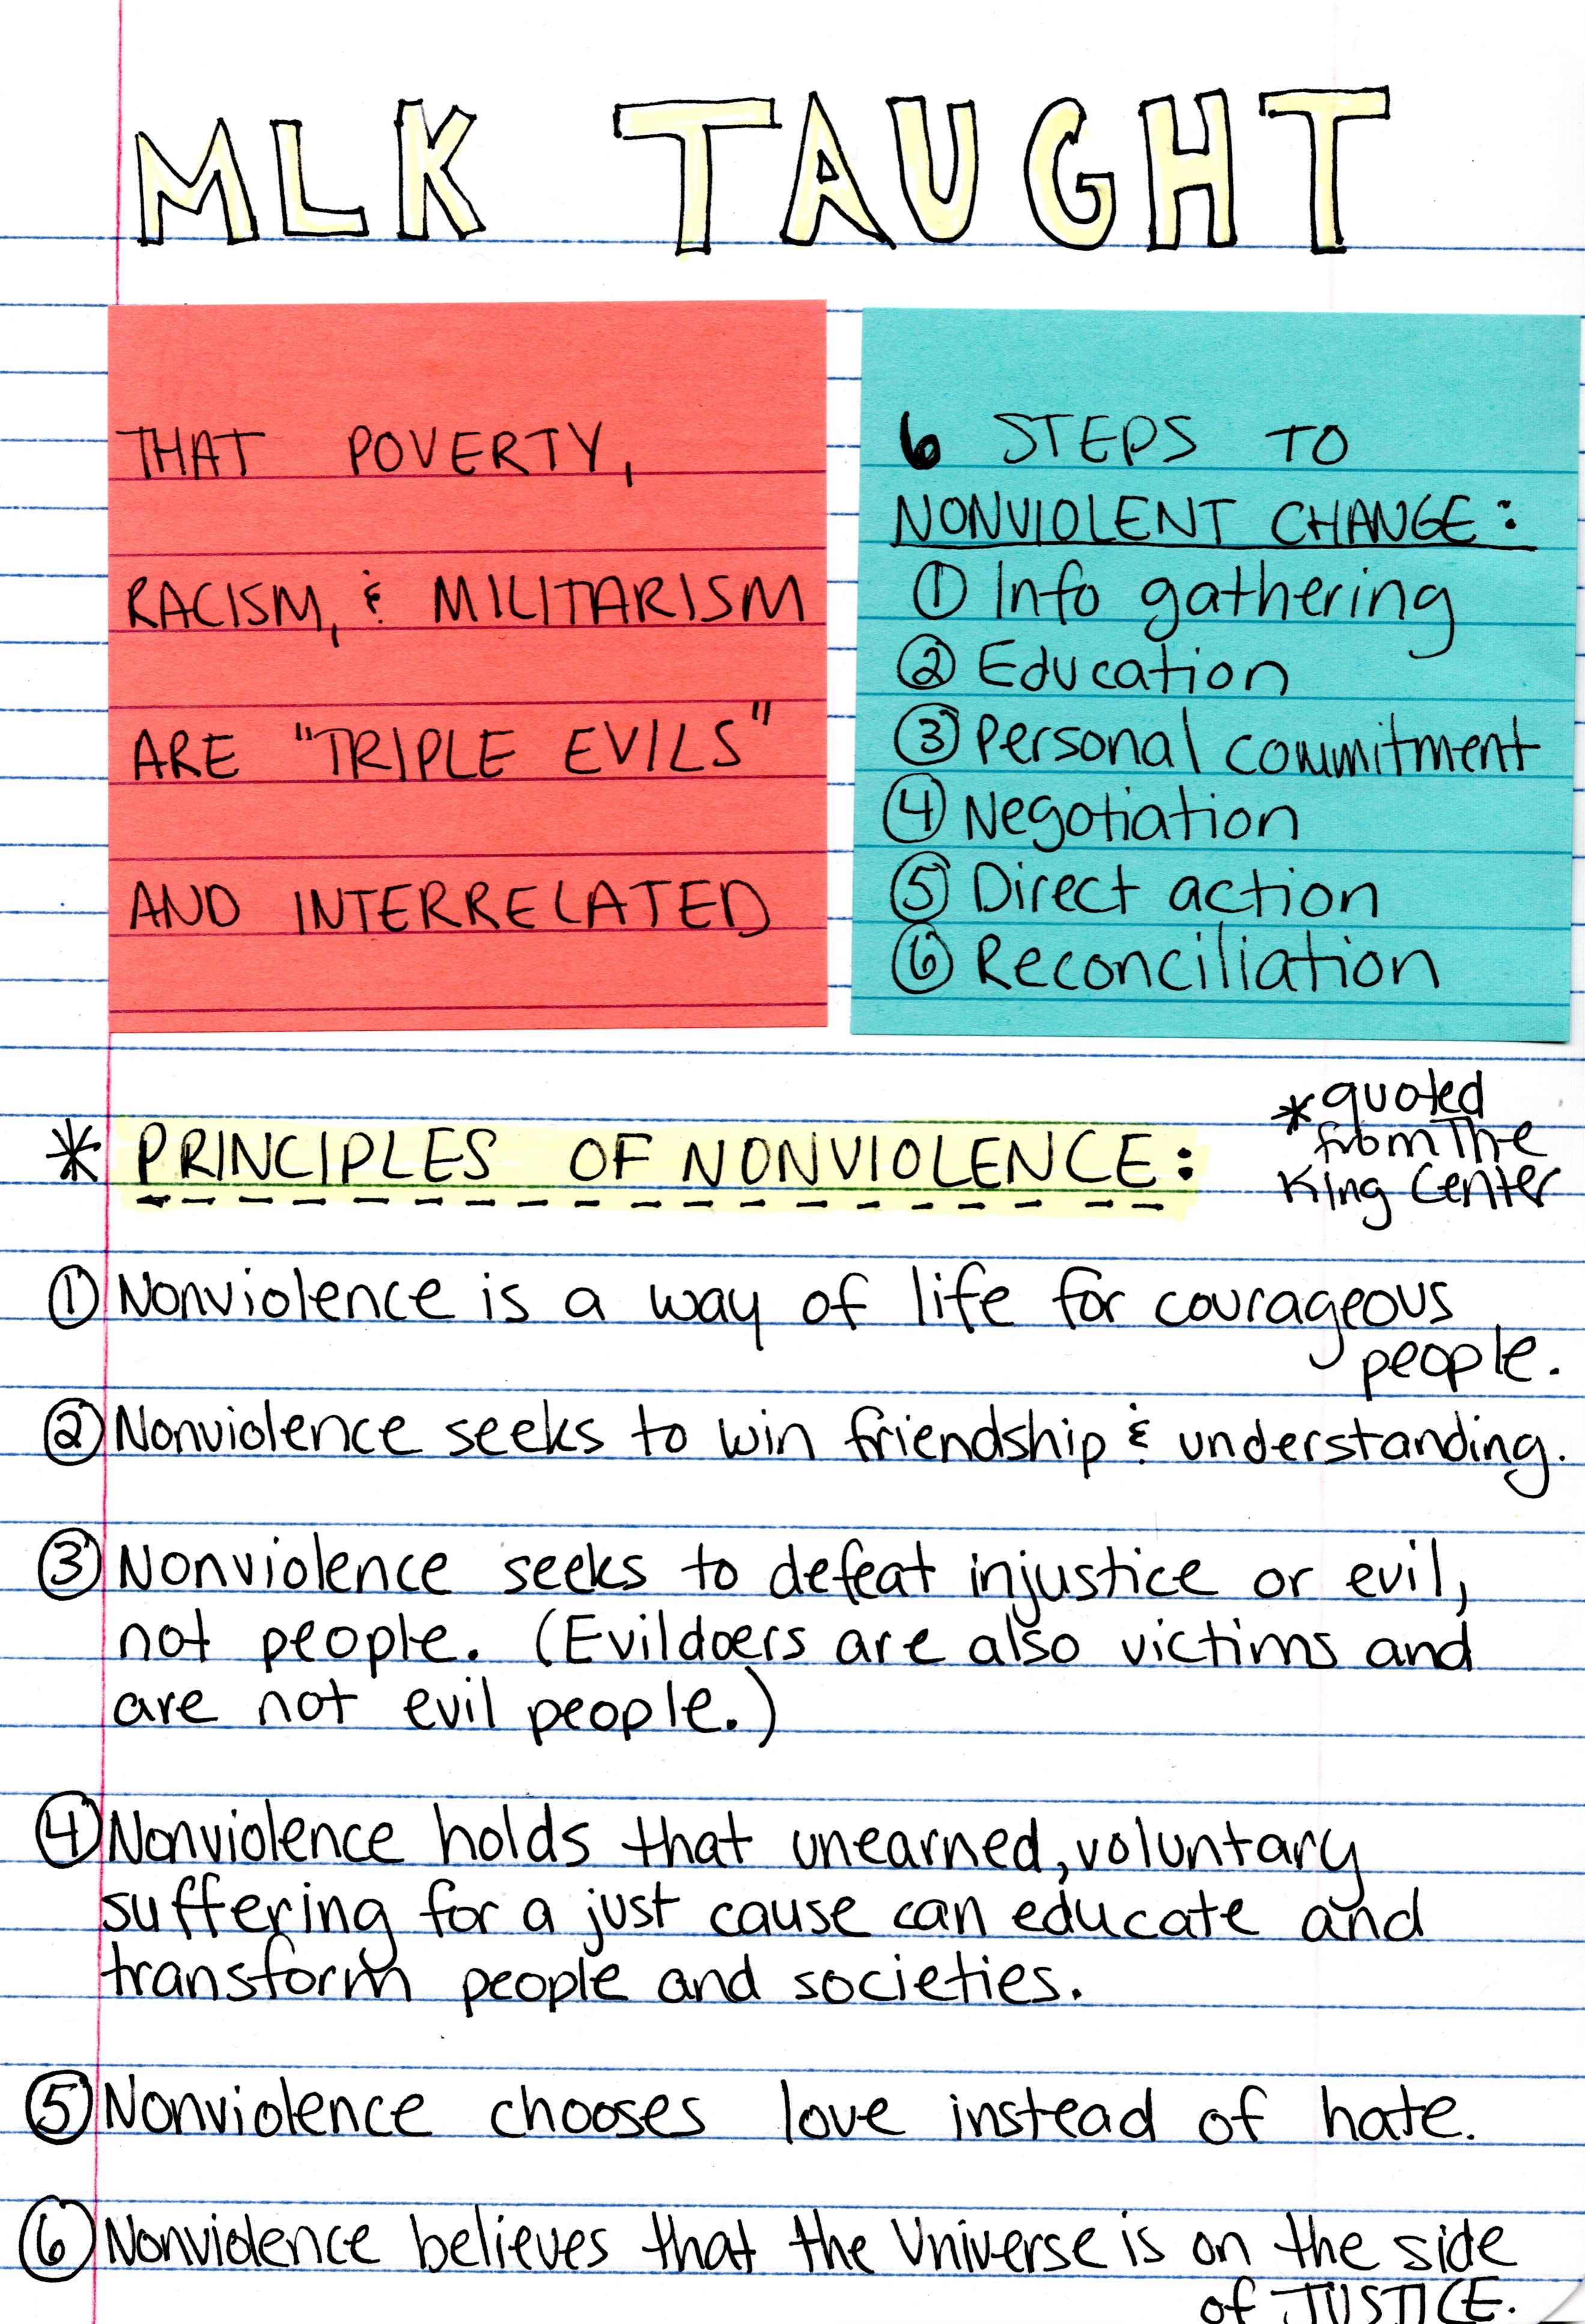 MLK TAUGHT
THAT POVERTY,
RACISM, & MILITARISM
ARE "TRIPLE EVILS"
AND INTERRELATED
6 STEPS TO
NONVIOLENT CHANGE:
① Info gathering
② Education
③ Personal commitment
④ Negotiation
⑤ Direct action
⑥ Reconciliation
* PRINCIPLES OF NONVIOLENCE:
* quoted
from The
King Center
① Nonviolence is a way of life for courageous
people.
② Nonviolence seeks to win friendship & understanding.
③ Nonviolence seeks to defeat injustice or evil,
not people. (Evildoers are also victims and
are not evil people.)
④ Nonviolence holds that unearned, voluntary
suffering for a just cause can educate and
transform people and societies.
⑤ Nonviolence chooses love instead of hate.
⑥ Nonviolence believes that the Universe is on the side
of JUSTICE.